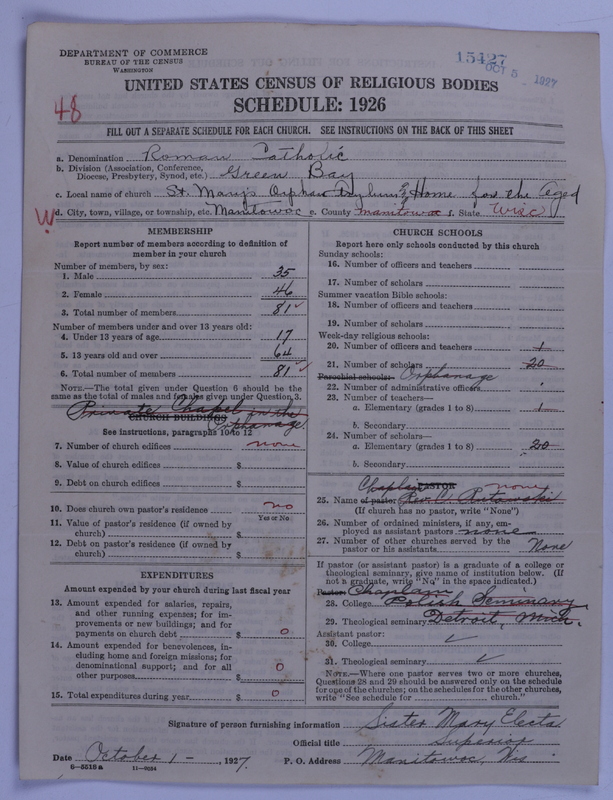 DEPARTMENT OF COMMERCE
BUREAU OF THE CENSUS
WASHINGTON
15427
OCT 5 1927
UNITED STATES CENSUS OF RELIGIOUS BODIES
SCHEDULE: 1926
48
FILL OUT A SEPARATE SCHEDULE FOR EACH CHURCH. SEE INSTRUCTIONS ON THE BACK OF THIS SHEET
a. Denomination Roman Catholic
b. Division (Association, Conference, Diocese, Presbytery, Synod, etc.) Green Bay
c. Local name of church St. Mary's Orphan Asylum & Home for the Aged
W
d. City, town, village, or township, etc. Manitowoc e. County Manitowoc f. State Wisc
MEMBERSHIP
Report number of members according to definition of
member in your church
Number of members, by sex:
1. Male 35
2. Female 46
3. Total number of members 81
Number of members under and over 13 years old:
4. Under 13 years of age 17
5. 13 years old and over 64
6. Total number of members 81
NOTE.—The total given under Question 6 should be the
same as the total of males and females given under Question 3.
Private Chapel in the
Orphanage.
CHURCH BUILDINGS
See instructions, paragraphs 10 to 12
7. Number of church edifices none
8. Value of church edifices $
9. Debt on church edifices $
10. Does church own pastor's residence no
Yes or No
11. Value of pastor's residence (if owned by
church) $
12. Debt on pastor's residence (if owned by
church) $
EXPENDITURES
Amount expended by your church during last fiscal year
13. Amount expended for salaries, repairs,
and other running expenses; for im-
provements or new buildings; and for
payments on church debt $ 0
14. Amount expended for benevolences, in-
cluding home and foreign missions; for
denominational support; and for all
other purposes $ 0
15. Total expenditures during year $ 0
CHURCH SCHOOLS
Report here only schools conducted by this church
Sunday schools:
16. Number of officers and teachers
17. Number of scholars
Summer vacation Bible schools:
18. Number of officers and teachers
19. Number of scholars
Week-day religious schools:
20. Number of officers and teachers 1
21. Number of scholars 20
Parochial schools: Orphanage
22. Number of administrative officers
23. Number of teachers—
a. Elementary (grades 1 to 8) 1
b. Secondary
24. Number of scholars—
a. Elementary (grades 1 to 8) 20
b. Secondary
Chaplain PASTOR none
25. Name of pastor Rev. C.
(If church has no pastor, write "None")
26. Number of ordained ministers, if any, em-
ployed as assistant pastors none
27. Number of other churches served by the
pastor or his assistants None
If pastor (or assistant pastor) is a graduate of a college or
theological seminary, give name of institution below. (If
not a graduate, write "No" in the space indicated.)
Pastor: Chaplain
28. College Polish Seminary
29. Theological seminary Detroit, Mich.
Assistant pastor:
30. College
31. Theological seminary
NOTE.—Where one pastor serves two or more churches,
Questions 28 and 29 should be answered only on the schedule
for one of the churches; on the schedules for the other churches,
write "See schedule for church."
Signature of person furnishing information Sister Mary Electa
Official title Superior
Date October 1 - , 1927. P. O. Address Manitowoc, Wis
6—5516 a 11—9034